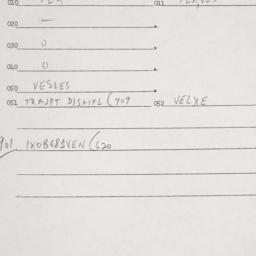 010
011
020 —
030 0
040 0
050 VESLES
051 TRAJPT DISTIPL (409 052 VELXE
901 1X0BG81VEN (620